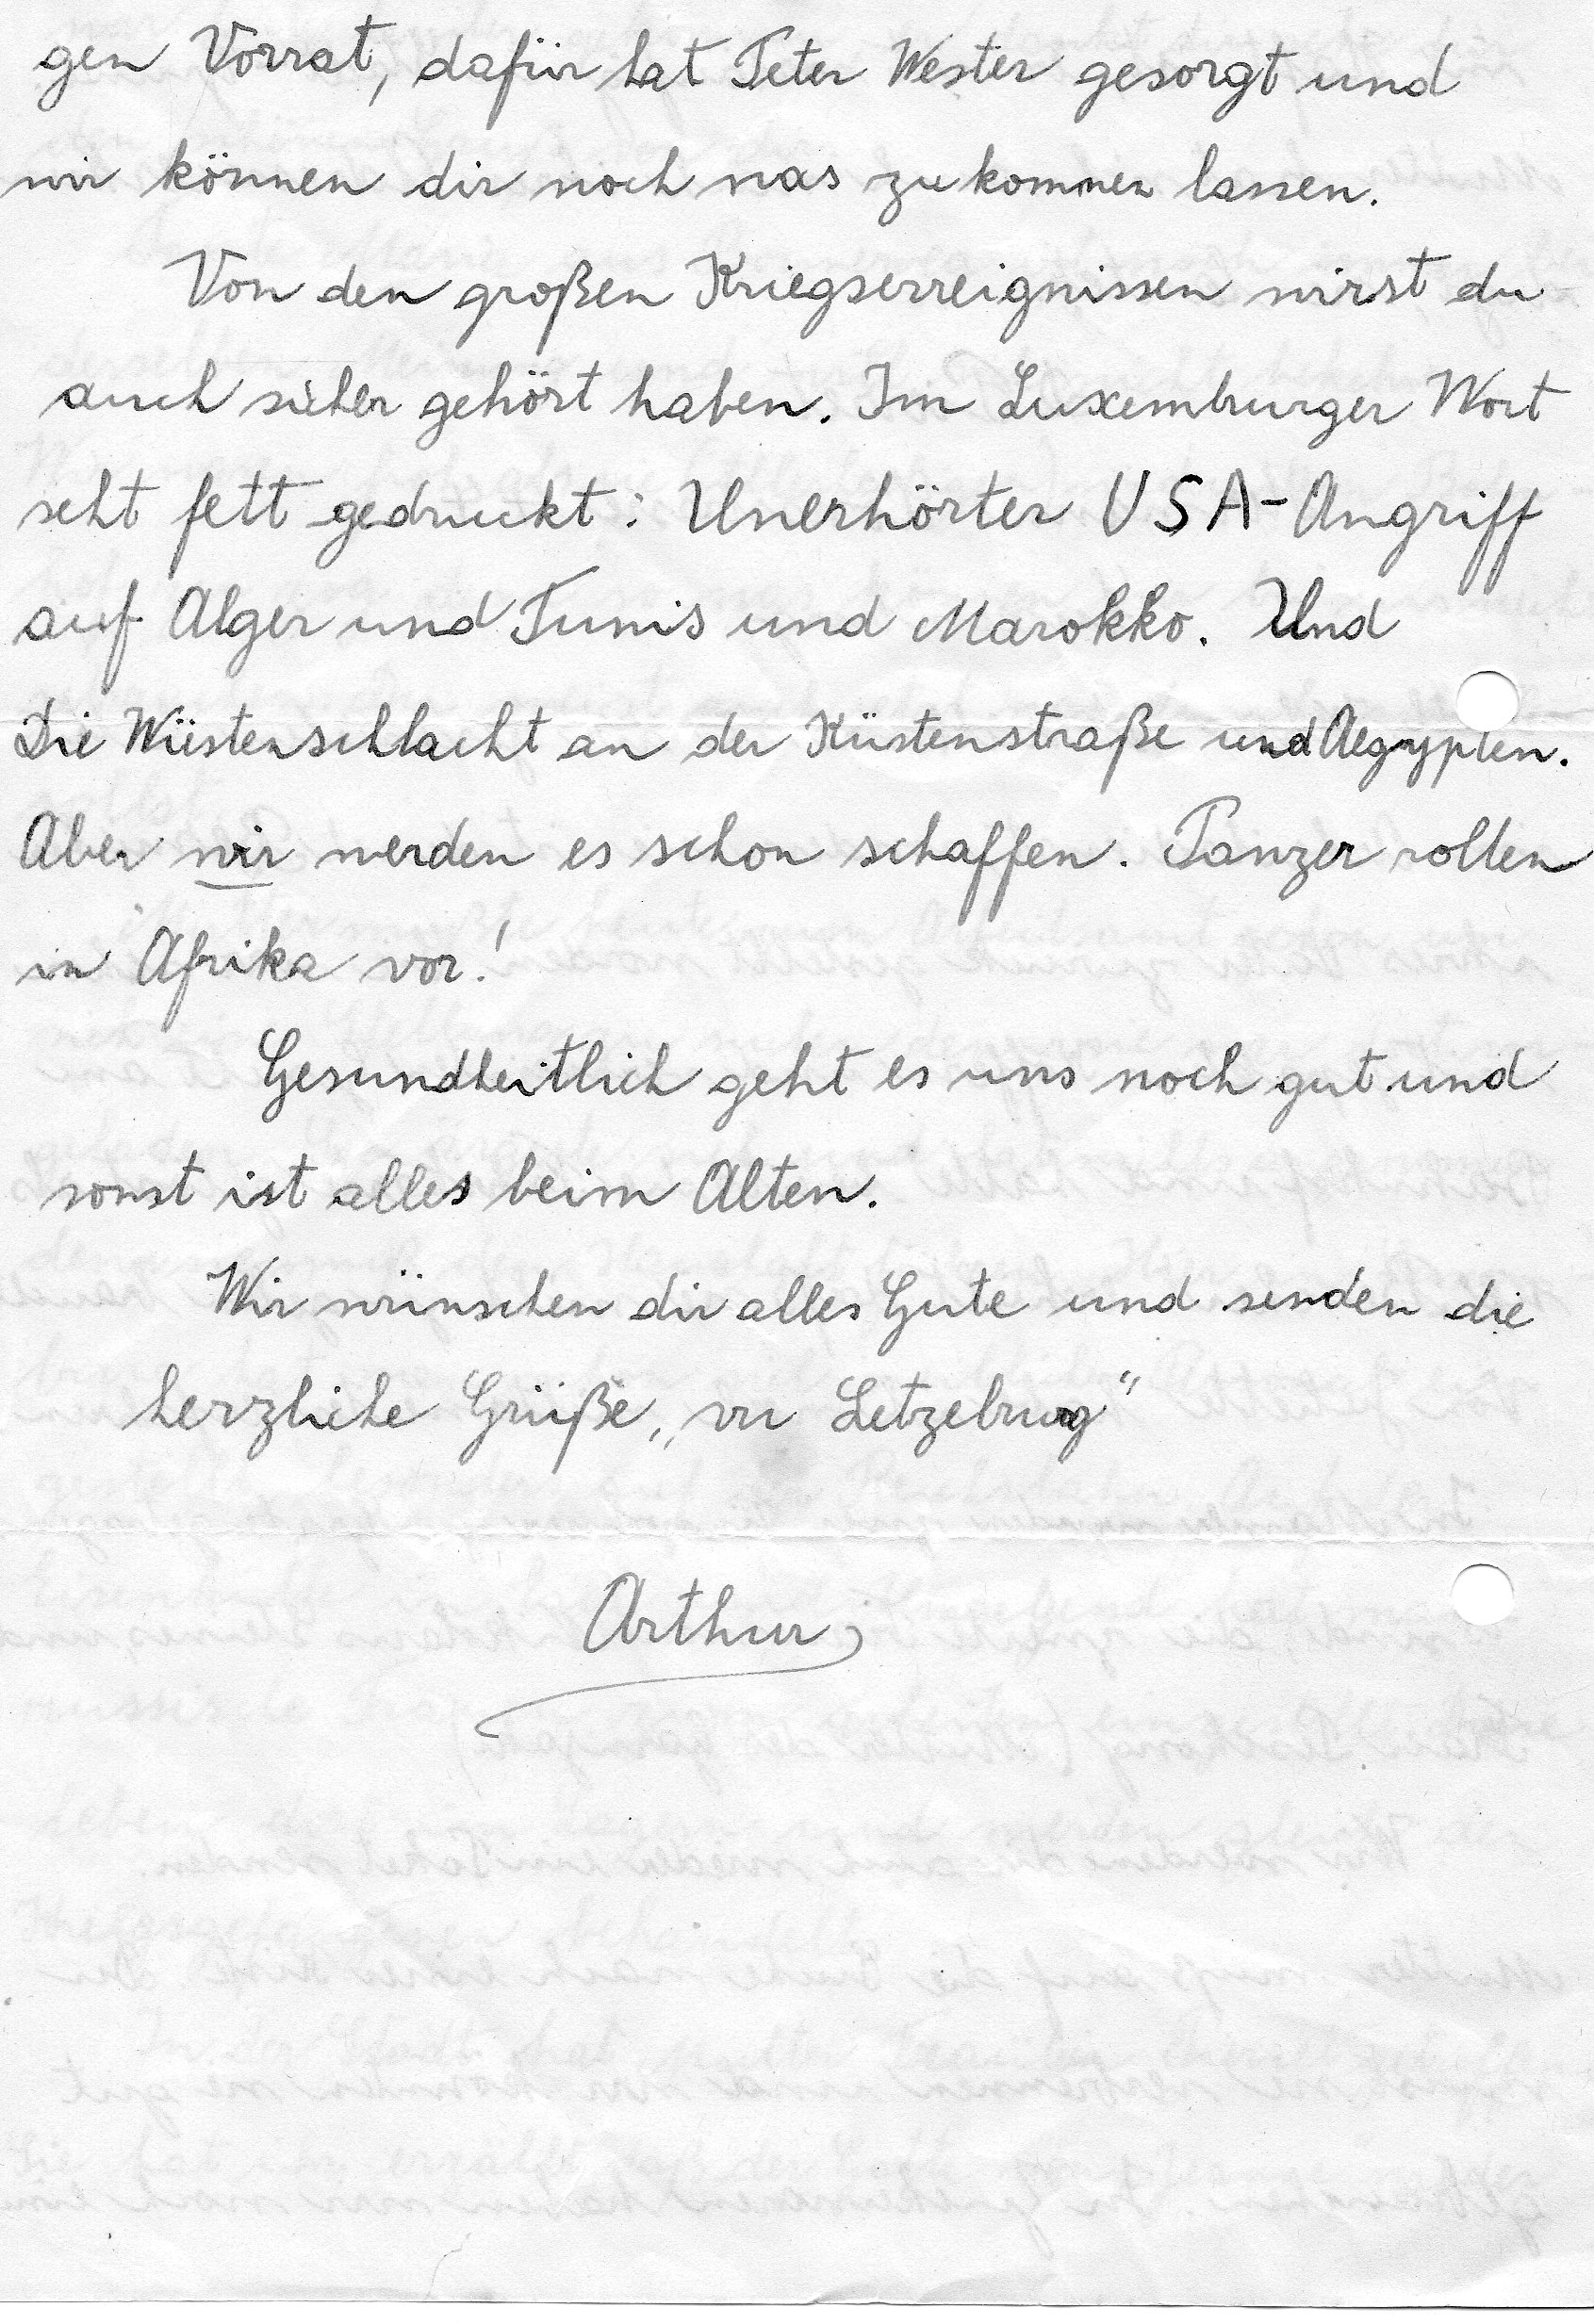 gen Vorrat, dafür hat Peter Wester gesorgt und
wir können dir noch was zukommen lassen.
Von den großen Kriegserreignissen wirst du
auch sicher gehört haben. Im Luxemburger Wort
seht fett gedruckt: Unerhörter USA-Angriff
auf Alger und Tunis und Marokko. Und
Die Wüstenschlacht an der Küstenstraße und Aegypten.
Aber wir werden es schon schaffen. Panzer rollen
in Afrika vor!
Gesundheitlich geht es uns noch gut und
sonst ist alles beim Alten.
Wir wünschen dir alles Gute und senden die
herzliche Grüße, „vu Letzeburg“
Arthur